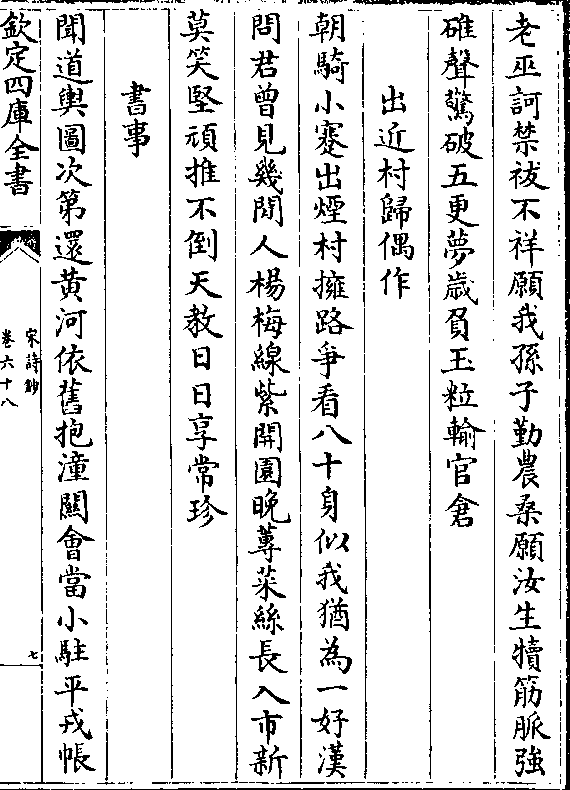 老巫訶禁祓不祥願我孫子勤農桑願汝生犢筋脈強
碓聲驚破五更夢歳負玉粒輸官倉
出近村歸偶作
朝騎小蹇出煙村擁路爭看八十身似我猶為一好漢
問君曾見幾閒人楊梅線紫開園晚蓴菜絲長入市新
莫笑堅頑推不倒天教日日享常珍
書事
聞道輿圖次第還黃河依舊抱潼關會當小駐平戎帳
欽定四庫全書
宋詩鈔
卷六十八
七